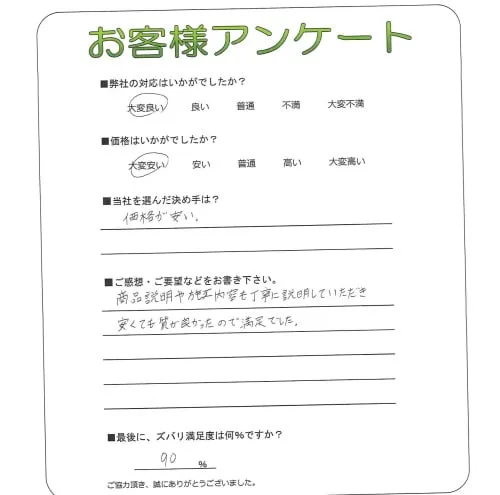 お客様アンケート
■弊社の対応はいかがでしたか？
大変良い 良い 普通 不満 大変不満
■価格はいかがでしたか？
大変安い 安い 普通 高い 大変高い
■当社を選んだ決め手は？
価格が安い。
■ご感想・ご要望などをお書き下さい。
商品説明や施工内容も丁寧に説明していただき
安くても質が良かったので満足でした。
■最後に、ズバリ満足度は何%ですか？
90 %
ご協力頂き、誠にありがとうございました。